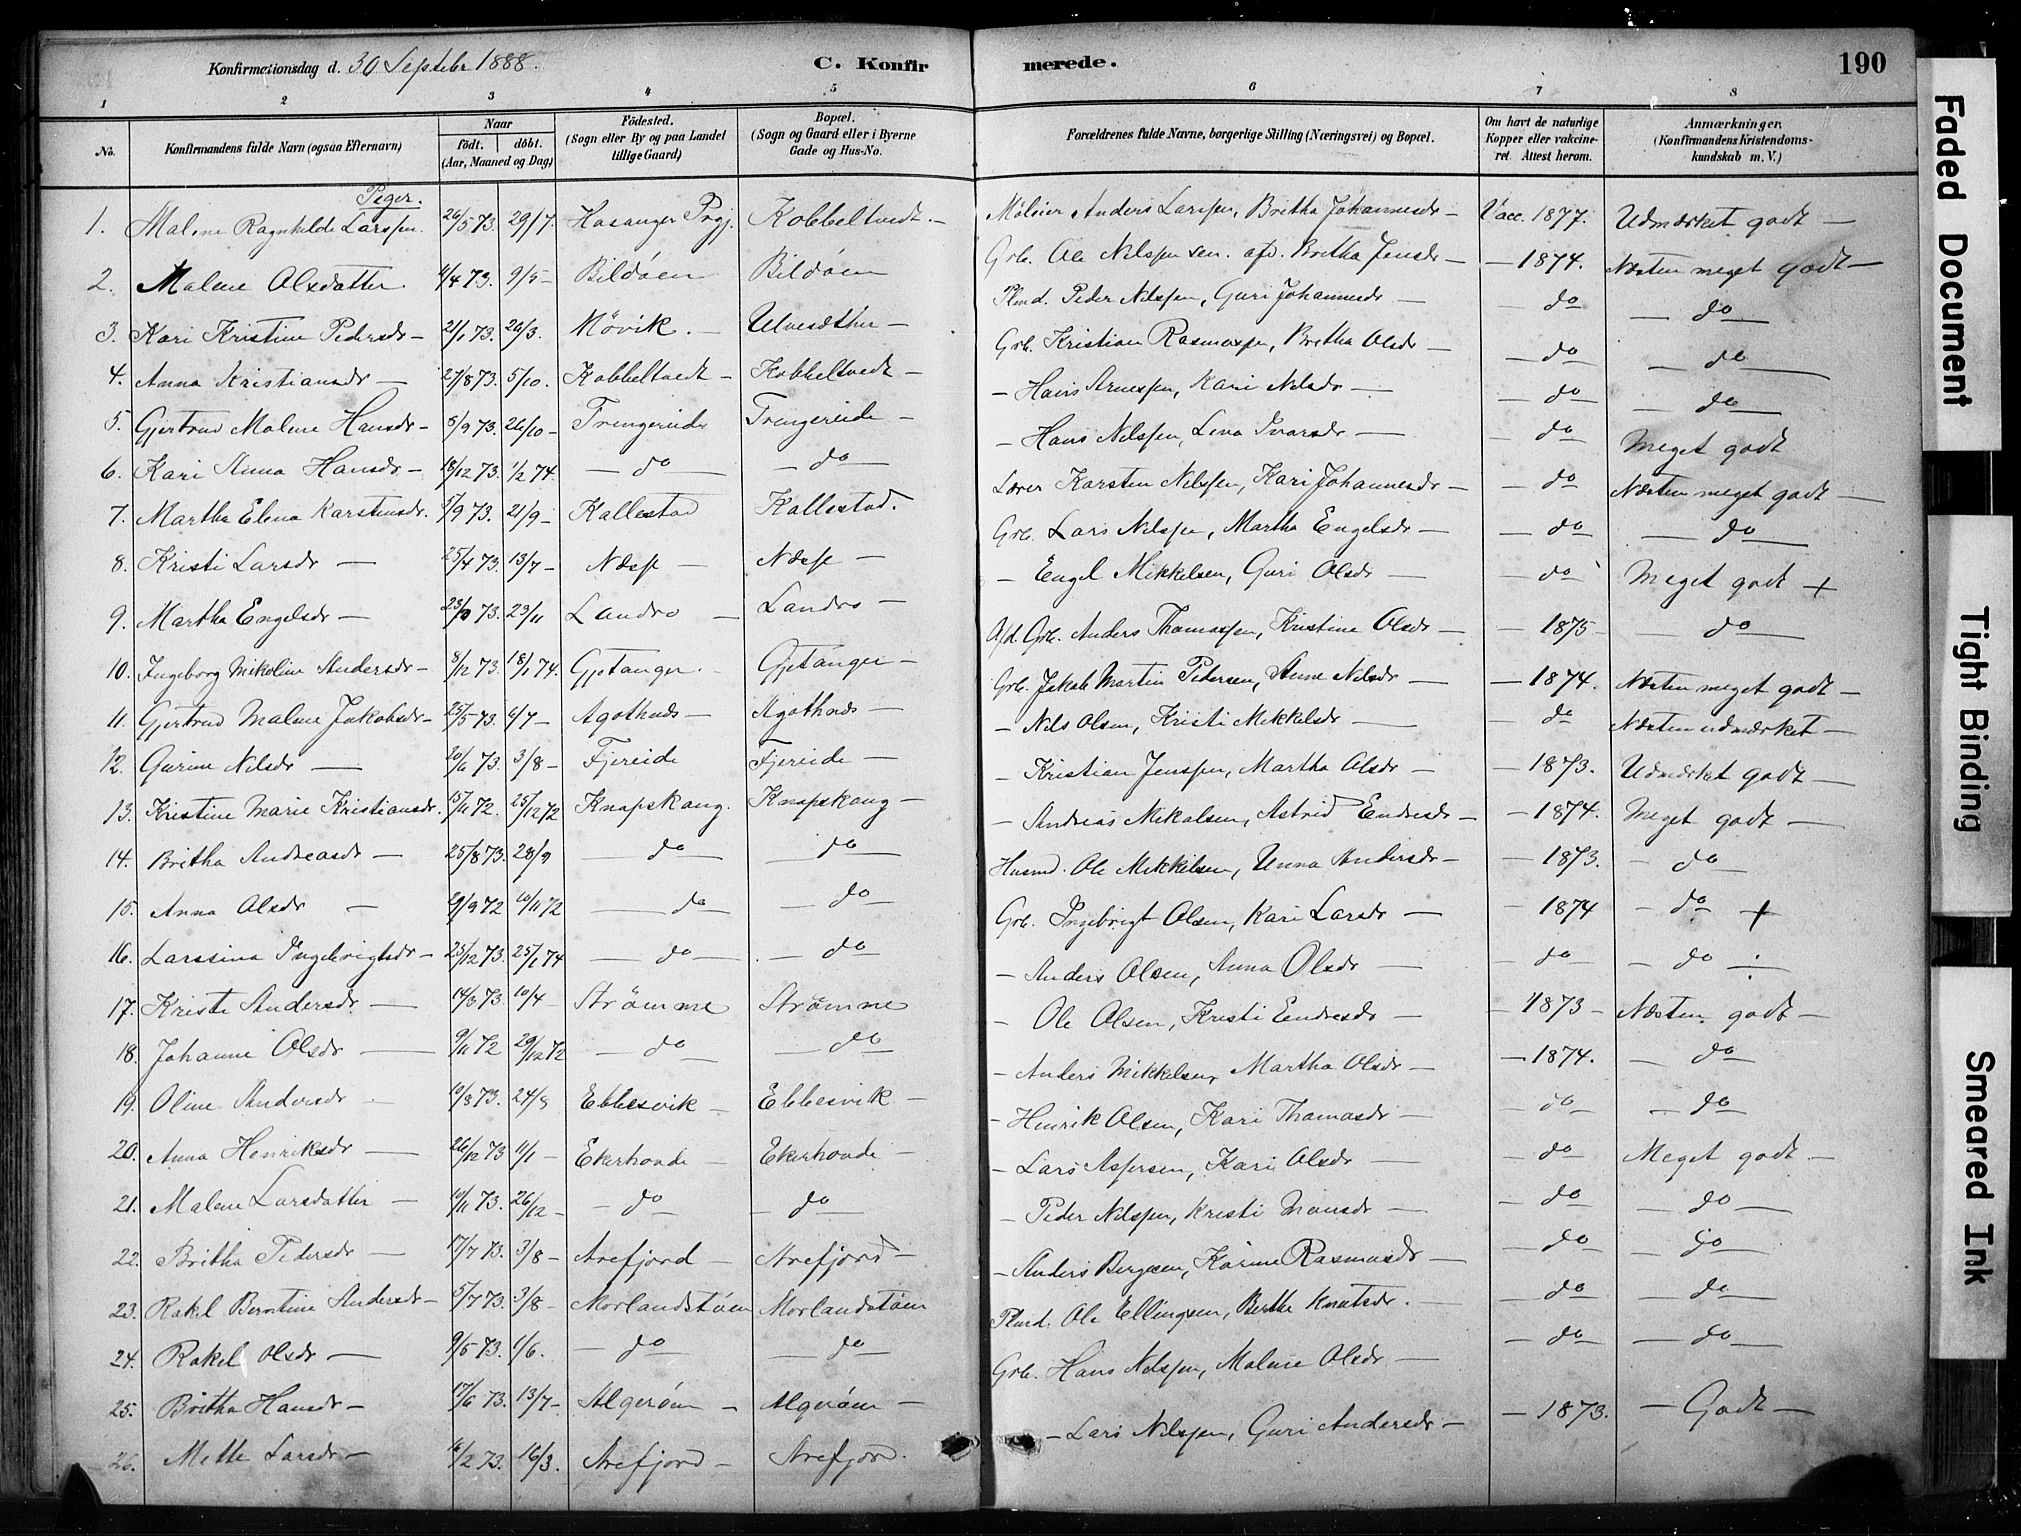 Konfirmationsdag d. 30 Septebr 1888. C. Konfirmerede. 190
1 2 3 4 5 6 7 8
No. Konfirmandens fulde Navn (ogsaa Efternavn) Naar født. døbt. (Aar, Maaned og Dag) Fødested. (Sogn eller By og paa Landet tillige Gaard) Bopæl. (Sogn og Gaard eller i Byerne Gade og Hus-No. Forældrenes fulde Navne, borgerlige Stilling (Næringsvei) og Bopæl. Om havt de naturlige Kopper eller vakcineret. Attest herom. Anmærkninger. (Konfirmandens Kristendomskundskab m. V.)
Piger.
1. Malene Ragnhilde Larssen. 26/5 73. 29/7. Hosanger Prgj. Kobbeltvedt. — Anders Larssen, Bretha Johannesdr — Vacc. 1877. Udmærket godt —
2. Malene Olsdatter. 4/4 73. 9/5 — Bildøen Bildøen Grb. Ole Nilssen sen. afd. Bretha Jensdr — — 1874. Næsten meget godt —
3. Kari Kristine Pedersdr — 21/1 73. 26/3. Møvik. — Ulvesæther — Plmd. Peder Nilssen, Guri Johannesdr — — do — do
4. Anna Kristiansdr — 27/8 73. 5/10. Kobbeltvedt — Kobbeltvedt — Grb. Kristian Rasmussen, Bretha Olsdr — — do — do
5. Gjertrud Malene Hansdr — 8/9 73. 26/10 — Trengereide Trengereide — — Hans Arnessen, Kari Nilsdr — — do — do
6. Kari Anna Hansdr — 18/12 73. 1/2 74. — do — — do — Hans Nilssen, Lena Ivarsdr — — do Meget godt
7. Martha Elena Karstensdr. 5/9 73. 21/9 — Kallestad Kallestad. Lærer Karsten Nilssen, Kari Johannesdr — — do Næsten meget godt —
8. Kristi Larsdr — 25/4 73. 13/7 — Næss — Næss — Grb. Lars Nilssen, Martha Engelsdr — — do — do
9. Martha Engelsdr — 73. 23/11 Landro — Landro — — Engel Mikkelsen, Guri Olsdr — — do Meget godt +
10. Ingeborg Mikoline Andersdr — 8/12 73. 18/1 74. Gjetanger. Gjetanger — Afd. Grb. Anders Thomassen, Kristine Olsdr — — 1875 — do
11. Gjertrud Malene Jakobsdr — 25/5 73. 6/7 — Agothnes — Agothnes — Grb. Jakob Martin Pedersen, Anne Nilsdr — — 1874. Næsten meget godt —
12. Gurine Nilsdr — 20/6 73. 3/8 — Fjereide Fjereide — — Nils Olsen, Kristi Mikkelsdr — — do Næsten udmærket —
13. Kristine Marie Kristiansdr. 15/11 72. 25/12 72 Knapskaug. Knapskaug — — Kristian Jenssen, Martha Olsdr — — 1873. Udmærket godt —
14. Britha Andreasdr — 25/8 73. 28/9 — do — — do — Andreas Mikalsen, Astrid Endresdr — — 1874. Meget godt —
15. Anna Olsdr — 29/9 72 10/11 72 — do — do Husmd. Ole Mikkelsen, Unna Andersdr — — 1873. — do
16. Larssina Ingebrigtsdr — 23/12 73. 25/1 74 — do — — do Grb. Ingebrigt Olsen, Kari Larsdr — — 1874 — do +
17. Kristi Andersdr. — 14/3 73. 10/4 — Strømme Strømme — Anders Olsen, Anna Olsdr — — do — do ÷
18. Johanne Olsdr — 9/11 72 29/12 72 — do — do — Ole Olsen, Kristi Eendresdr — — 1873 — Næsten godt —
19. Oline Andersdr — 10/8 73. 24/8 Ebbesvik — Ebbesvik — — Anders Mikkelsen, Martha Olsdr — — 1874. — do
20. Anna Henriksdr — 26/12 73 11/1 — Ekerhovde — Ekerhovde — — Henrik Olsen, Kari Thomasdr — — do — do
21. Malene Larsdatter — 10/11 73. 26/12 — — do — do — Lars Aspersen, Kari Olsdr — — do Meget godt —
22. Britha Pedersdr — 17/7 73. 3/8 — Arefjord — Arefjord — — Peder Nilssen, Kristi Monsdr — — do — do
23. Rakel Berntine Andersdr — 5/7 73. 3/8 — Morlandstøen Morlandstøen — Anders Bergesen, Karine Rasmusdr — — do — do
24. Rakel Olsdr — 9/5 73. 1/6. — do — do Plmd. Ole Ellingsen, Berthe Knutsdr. — — do — do
25. Britha Hansdr — 17/6 73. 13/7 — Algerøen — Algerøen — Grb. Hans Nilssen, Malene Olsdr — — do — do
26. Mette Larsdr — 16/2 73. 16/3. Arefjord — Arefjord. — Lars Nilssen, Guri Andersdr — — 1873. — Godt —
Faded Document
Tight Binding
Smeared Ink